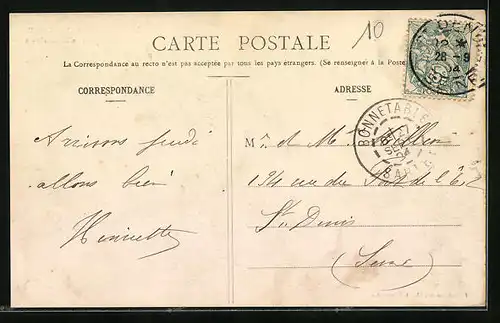 10
CARTE POSTALE
La Correspondance au recto n'est pas acceptée par tous les pays étrangers. (Se renseigner à la Poste
CORRESPONDANCE
ADRESSE
BONNETABLE
SARTHE
28 - 9
Arrivons jeudi
allons bien
Henriette
Mr. et Me
134 rue du Port de l'E
St. Denis
(Seine)